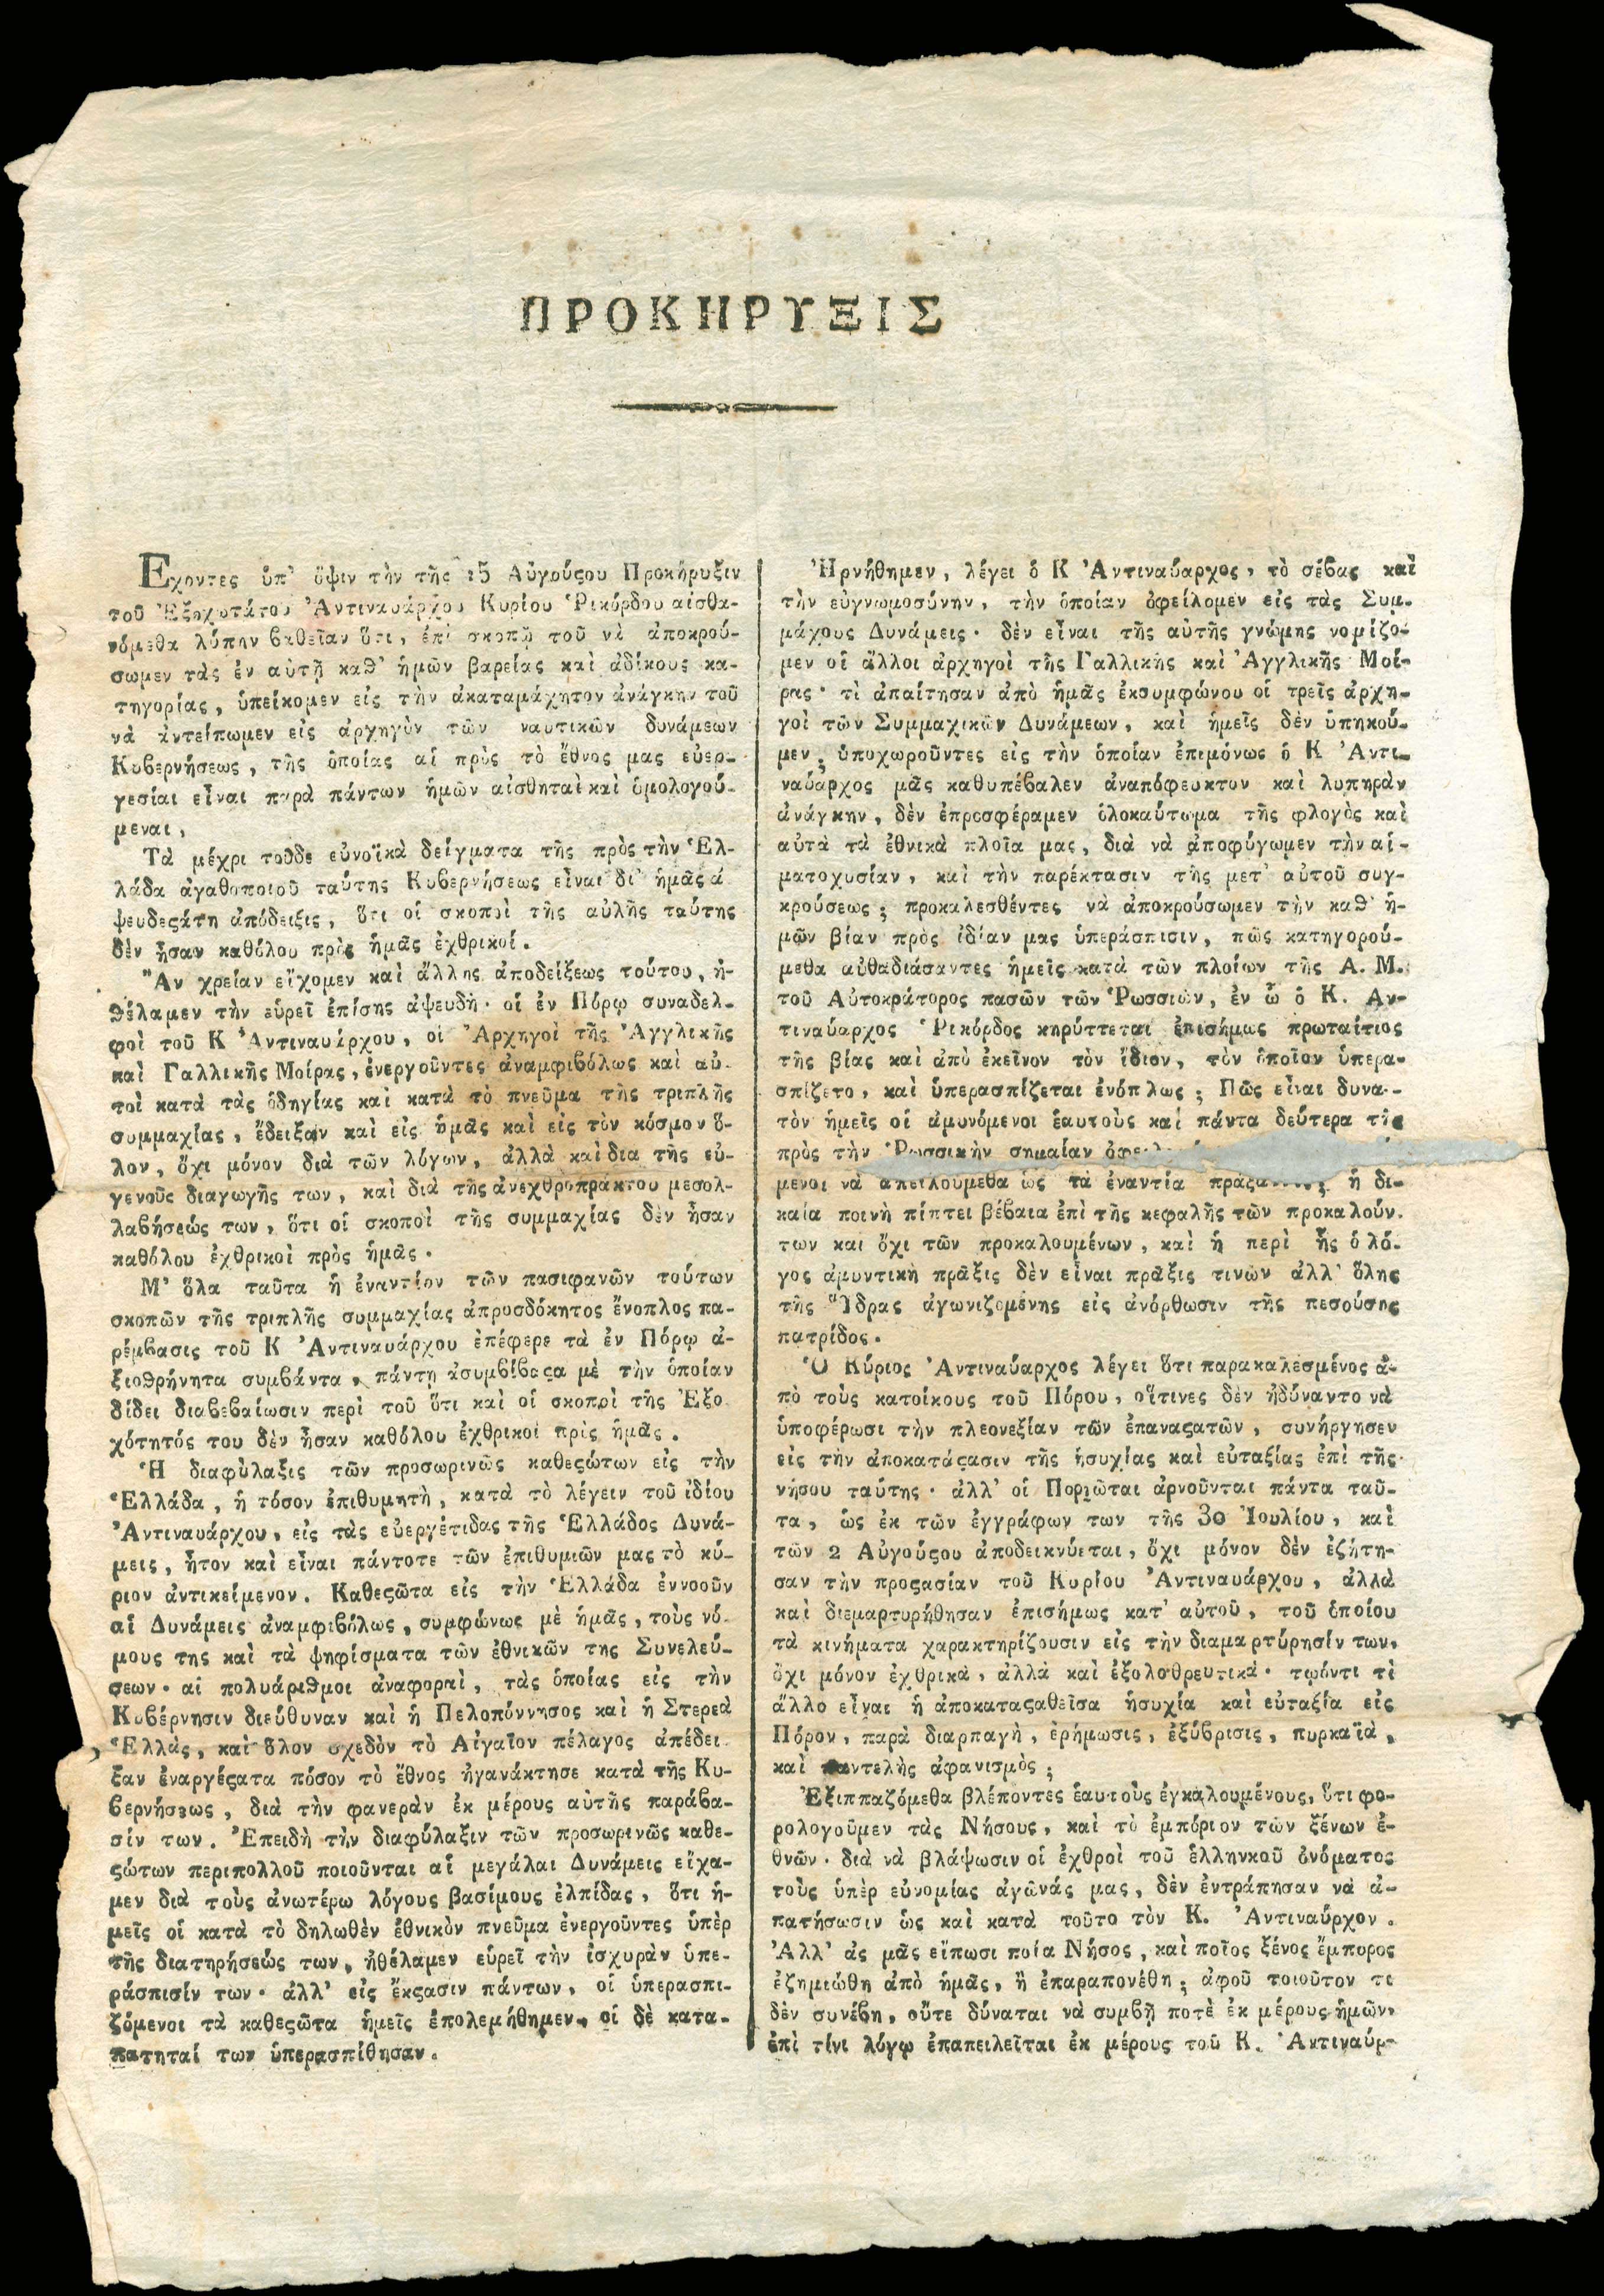 ΠΡΟΚΗΡΥΞΙΣ
Εχοντες ὑπ' ὄψιν τὴν τῆς 15 Αὐγούςου Προκήρυξιν
τοῦ Ἐξοχωτάτου Ἀντιναυάρχου Κυρίου Ῥικόρδου αἰσθα-
νόμεθα λύπην βαθεῖαν ὅτι, ἐπὶ σκοπῷ τοῦ νὰ ἀποκρού-
σωμεν τὰς ἐν αὐτῇ καθ' ἡμῶν βαρείας καὶ ἀδίκους κα-
τηγορίας, ὑπείκομεν εἰς τὴν ἀκαταμάχητον ἀνάγκην τοῦ
νὰ ἀντείπωμεν εἰς ἀρχηγὸν τῶν ναυτικῶν δυνάμεων
Κυβερνήσεως, τῆς ὁποίας αἱ πρὸς τὸ ἔθνος μας εὐερ-
γεσίαι εἶναι παρὰ πάντων ἡμῶν αἰσθηταὶ καὶ ὁμολογού-
μεναι,
Τὰ μέχρι τοῦδε εὐνοϊκὰ δείγματα τῆς πρὸς τὴν Ἑλ-
λάδα ἀγαθοποιοῦ ταύτης Κυβερνήσεως εἶναι δι' ἡμᾶς ἀ
ψευδεςάτη ἀπόδειξις, ὅτι οἱ σκοποὶ τῆς αὐλῆς ταύτης
δὲν ἦσαν καθόλου πρὸς ἡμᾶς ἐχθρικοί.
Ἂν χρείαν εἴχομεν καὶ ἄλλης ἀποδείξεως τούτου, ἠ-
θέλαμεν τὴν εὑρεῖ ἐπίσης ἀψευδῆ· οἱ ἐν Πόρῳ συναδελ-
φοὶ τοῦ Κ Ἀντιναυάρχου, οἱ Ἀρχηγοὶ τῆς Ἀγγλικῆς
καὶ Γαλλικῆς Μοίρας, ἐνεργοῦντες ἀναμφιβόλως καὶ αὐ-
τοὶ κατὰ τὰς ὁδηγίας καὶ κατὰ τὸ πνεῦμα τῆς τριπλῆς
συμμαχίας, ἔδειξαν καὶ εἰς ἡμᾶς καὶ εἰς τὸν κόσμον ὅ-
λον, ὄχι μόνον διὰ τῶν λόγων, ἀλλὰ καὶ δια τῆς εὐ-
γενοῦς διαγωγῆς των, καὶ διὰ τῆς ἀνεχθροπράκτου μεσολ-
λαβήσεώς των, ὅτι οἱ σκοποὶ τῆς συμμαχίας δὲν ἦσαν
καθόλου ἐχθρικοὶ πρὸς ἡμᾶς.
Μ' ὅλα ταῦτα ἡ ἐναντίον τῶν πασιφανῶν τούτων
σκοπῶν τῆς τριπλῆς συμμαχίας ἀπροσδόκητος ἔνοπλος πα-
ρέμβασις τοῦ Κ Ἀντιναυάρχου ἐπέφερε τὰ ἐν Πόρῳ ἀ-
ξιοθρήνητα συμβάντα, πάντη ἀσυμβίβαςα μὲ τὴν ὁποίαν
δίδει διαβεβαίωσιν περὶ τοῦ ὅτι καὶ οἱ σκοποὶ τῆς Ἐξο
χότητός του δὲν ἦσαν καθόλου ἐχθρικοὶ πρὸς ἡμᾶς.
Ἡ διαφύλαξις τῶν προσωρινῶς καθεςώτων εἰς τὴν
Ἑλλάδα, ἡ τόσον ἐπιθυμητὴ, κατὰ τὸ λέγειν τοῦ ἰδίου
Ἀντιναυάρχου, εἰς τὰς εὐεργέτιδας τῆς Ἑλλάδος Δυνά-
μεις, ἦτον καὶ εἶναι πάντοτε τῶν ἐπιθυμιῶν μας τὸ κύ-
ριον ἀντικείμενον. Καθεςῶτα εἰς τὴν Ἑλλάδα ἐννοοῦν
αἱ Δυνάμεις ἀναμφιβόλως, συμφώνως μὲ ἡμᾶς, τοὺς νό-
μους της καὶ τὰ ψηφίσματα τῶν ἐθνικῶν της Συνελεύ-
σεων· αἱ πολυάριθμοι ἀναφοραὶ, τὰς ὁποίας εἰς τὴν
Κυβέρνησιν διεύθυναν καὶ ἡ Πελοπόννησος καὶ ἡ Στερεὰ
Ἑλλὰς, καὶ ὅλον σχεδὸν τὸ Αἰγαῖον πέλαγος ἀπέδει
ξαν ἐναργέςατα πόσον τὸ ἔθνος ἠγανάκτησε κατὰ τῆς Κυ-
βερνήσεως, διὰ τὴν φανερὰν ἐκ μέρους αὐτῆς παράβα-
σίν των. Ἐπειδὴ τὴν διαφύλαξιν τῶν προσωρινῶς καθε-
ςώτων περιπολλοῦ ποιοῦνται αἱ μεγάλαι Δυνάμεις εἴχα-
μεν διὰ τοὺς ἀνωτέρω λόγους βασίμους ἐλπίδας, ὅτι ἡ-
μεῖς οἱ κατὰ τὸ δηλωθὲν ἐθνικὸν πνεῦμα ἐνεργοῦντες ὑπὲρ
τῆς διατηρήσεώς των, ἠθέλαμεν εὑρεῖ τὴν ἰσχυρὰν ὑπε-
ράσπισίν των· ἀλλ' εἰς ἔκςασιν πάντων, οἱ ὑπερασπι-
ζόμενοι τὰ καθεςῶτα ἡμεῖς ἐπολεμήθημεν, οἱ δὲ κατα-
πατηταί των ὑπερασπίθησαν.
Ἠρνήθημεν, λέγει ὁ Κ Ἀντιναύαρχος, τὸ σέβας καὶ
τὴν εὐγνωμοσύνην, τὴν ὁποίαν ὀφείλομεν εἰς τὰς Συμ-
μάχους Δυνάμεις· δὲν εἶναι τῆς αὐτῆς γνώμης νομίζο-
μεν οἱ ἄλλοι ἀρχηγοὶ τῆς Γαλλικῆς καὶ Ἀγγλικῆς Μοί-
ρας· τὶ ἀπαίτησαν ἀπὸ ἡμᾶς ἐκσυμφώνου οἱ τρεῖς ἀρχη-
γοὶ τῶν Συμμαχικῶν Δυνάμεων, καὶ ἡμεῖς δὲν ὑπηκού-
μεν; ὑποχωροῦντες εἰς τὴν ὁποίαν ἐπιμόνως ὁ Κ Ἀντι-
ναύαρχος μᾶς καθυπέβαλεν ἀναπόφευκτον καὶ λυπηρὰν
ἀνάγκην, δὲν ἐπροσφέραμεν ὁλοκαύτωμα τῆς φλογὸς καὶ
αὐτὰ τὰ ἐθνικὰ πλοῖα μας, διὰ νὰ ἀποφύγωμεν τὴν αἱ-
ματοχυσίαν, καὶ τὴν παρέκτασιν τῆς μετ' αὐτοῦ συγ-
κρούσεως; προκαλεσθέντες νὰ ἀποκρούσωμεν τὴν καθ' ἡ-
μῶν βίαν πρὸς ἰδίαν μας ὑπεράσπισιν, πῶς κατηγορού-
μεθα αὐθαδιάσαντες ἡμεῖς κατὰ τῶν πλοίων τῆς Α. Μ.
τοῦ Αὐτοκράτορος πασῶν τῶν Ῥωσσιῶν, ἐν ᾧ ὁ Κ. Αν-
τιναύαρχος Ῥικόρδος κηρύττεται ἐπισήμως πρωταίτιος
τῆς βίας καὶ ἀπὸ ἐκεῖνον τὸν ἴδιον, τὸν ὁποῖον ὑπερα-
σπίζετο, καὶ ὑπερασπίζεται ἐνόπλως; Πῶς εἶναι δυνα-
τὸν ἡμεῖς οἱ ἀμυνόμενοι ἑαυτοὺς καὶ πάντα δεύτερα τῆς
πρὸς τὴν Ῥωσσικὴν σημαίαν
μενοι νὰ ἀπειλούμεθα ὡς τὰ ἐναντία ἡ δι-
καία ποινὴ πίπτει βέβαια ἐπὶ τῆς κεφαλῆς τῶν προκαλούν-
των και ὄχι τῶν προκαλουμένων, καὶ ἡ περὶ ἧς ὁ λό-
γος ἀμυντικὴ πρᾶξις δὲν εἶναι πρᾶξις τινῶν ἀλλ' ὅλης
τῆς Ὕδρας ἀγωνιζομένης εἰς ἀνόρθωσιν τῆς πεσούσης
πατρίδος.
Ὁ Κύριος Ἀντιναύαρχος λέγει ὅτι παρακαλεσμένος ἀ-
πὸ τοὺς κατοίκους τοῦ Πόρου, οἵτινες δὲν ἠδύναντο νὰ
ὑποφέρωσι τὴν πλεονεξίαν τῶν ἐπαναςατῶν, συνήργησεν
εἰς τὴν ἀποκατάςασιν τῆς ἡσυχίας καὶ εὐταξίας ἐπὶ τῆς
νήσου ταύτης· ἀλλ' οἱ Ποριῶται ἀρνοῦνται πάντα ταῦ-
τα, ὡς ἐκ τῶν ἐγγράφων των τῆς 30 Ἰουλίου, καὶ
τῶν 2 Αὐγούςου ἀποδεικνύεται, ὄχι μόνον δὲν ἐζήτη-
σαν τὴν προςασίαν τοῦ Κυρίου Ἀντιναυάρχου, ἀλλὰ
καὶ διεμαρτυρήθησαν ἐπισήμως κατ' αὐτοῦ, τοῦ ὁποίου
τὰ κινήματα χαρακτηρίζουσιν εἰς τὴν διαμαρτύρησίν των,
ὄχι μόνον ἐχθρικὰ, ἀλλὰ καὶ ἐξολοθρευτικά· τῳόντι τὶ
ἄλλο εἶναι ἡ ἀποκαταςαθεῖσα ἡσυχία καὶ εὐταξία εἰς
Πόρον, παρὰ διαρπαγὴ, ἐρήμωσις, ἐξύβρισις, πυρκαϊὰ,
καὶ παντελὴς ἀφανισμὸς;
Ἐξιππαζόμεθα βλέποντες ἑαυτοὺς ἐγκαλουμένους, ὅτι φο-
ρολογοῦμεν τὰς Νήσους, καὶ τὸ ἐμπόριον τῶν ξένων ἐ-
θνῶν· διὰ νὰ βλάψωσιν οἱ ἐχθροὶ τοῦ ἑλληνκοῦ ὀνόματος
τοὺς ὑπὲρ εὐνομίας ἀγῶνάς μας, δὲν ἐντράπησαν νὰ ἀ-
πατήσωσιν ὡς καὶ κατὰ τοῦτο τὸν Κ. Ἀντιναύρχον.
Ἀλλ' ἀς μᾶς εἴπωσι ποία Νῆσος, καὶ ποῖος ξένος ἔμπορος
ἐζημιώθη ἀπὸ ἡμᾶς, ἢ ἐπαραπονέθη; ἀφοῦ τοιοῦτον τι
δὲν συνέβη, οὔτε δύναται νὰ συμβῇ ποτὲ ἐκ μέρους ἡμῶν,
ἐπὶ τίνι λόγῳ ἐπαπειλεῖται ἐκ μέρους τοῦ Κ. Ἀντιναύρ-